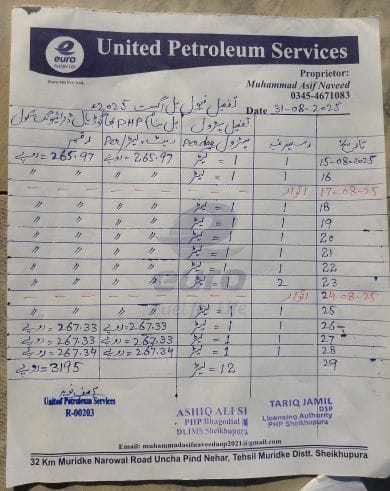 euro
Fuel for Life
United Petroleum Services
Proprietor:
Muhammad Asif Naveed
0345-4671083
تفصیل فیول بل اگست 2025ء Date 31-08-2025
تاریخ پٹرول Per day ریٹ لیٹر/Per رقم
15-08-2025 1 1 = لیٹر 265.97 = روپے 265.97 = روپے
16 1 1 = لیٹر 〃 〃 〃 〃
17-08-25 اتوار
18 1 1 = لیٹر 〃 〃 〃 〃
19 1 1 = لیٹر 〃 〃 〃 〃
20 1 1 = لیٹر 〃 〃 〃 〃
21 1 1 = لیٹر 〃 〃 〃 〃
22 1 1 = لیٹر 〃 〃 〃 〃
23 2 1 = لیٹر 〃 〃 〃 〃
24-08-25 اتوار
25 1 1 = لیٹر 〃 〃 〃 〃
26 1 1 = لیٹر 267.33 = روپے 267.33 = روپے
27 1 1 = لیٹر 267.33 = روپے 267.33 = روپے
28 1 1 = لیٹر 267.34 = روپے 267.34 = روپے
29 12 = لیٹر 3195 = روپے
euro
Fuel for Life
United Petroleum Services
R-00203
ASHIQ ALI SI
PHP Bhagodial
DLIMS Sheikhupura
TARIQ JAMIL
DSP
Licensing Authority
PHP Sheikhupura
Email: muhammadasifnaveedaop2021@gmail.com
32 Km Muridke Narowal Road Uncha Pind Nehar, Tehsil Muridke Distt. Sheikhupura